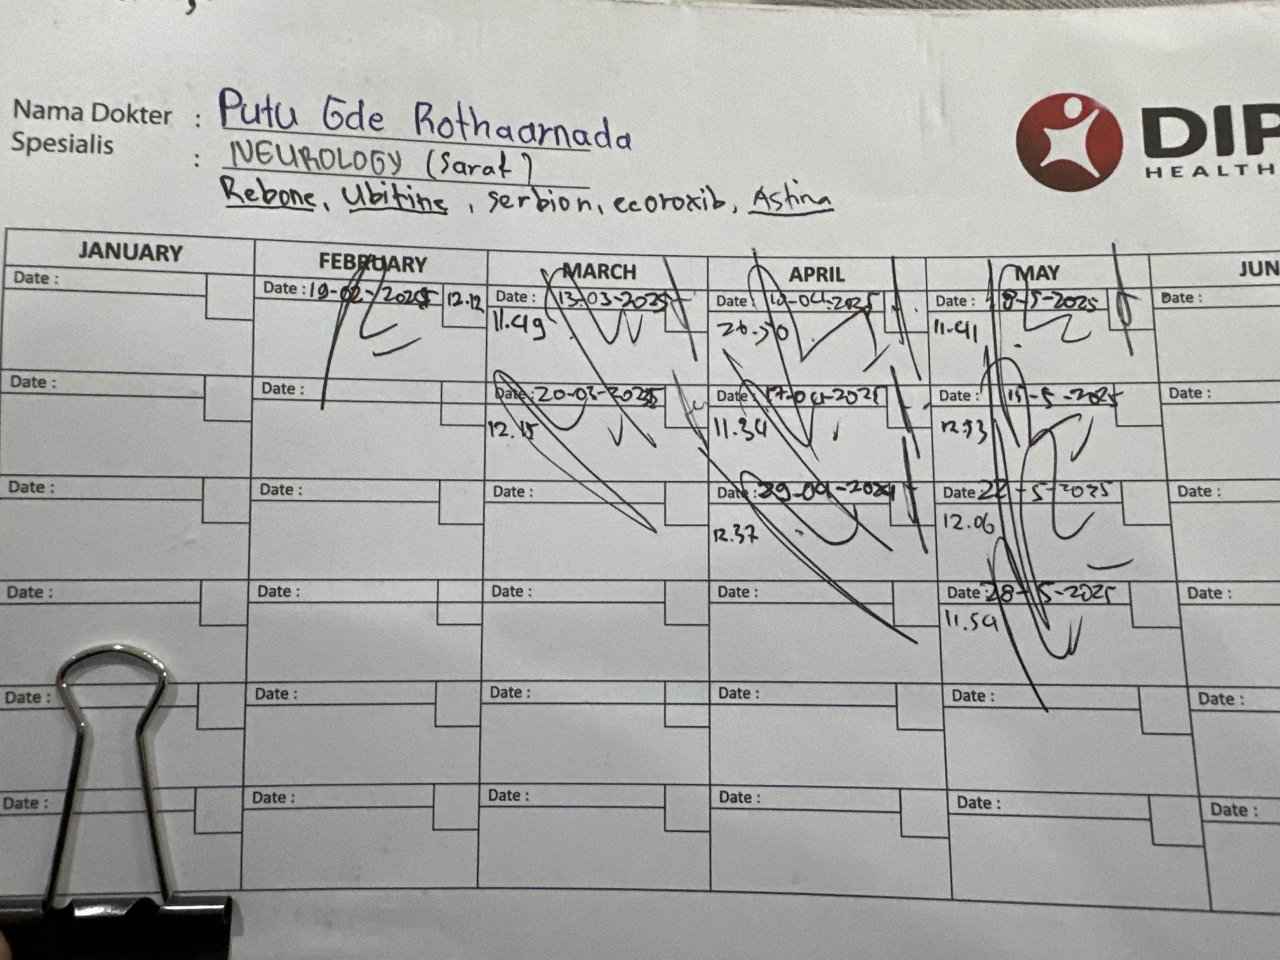 Nama Dokter : Putu Gde Rothaarnada
Spesialis : NEUROLOGY (Saraf)
Rebone, Ubitine, serbion, ecoroxib, Astina
DIP
HEALTH
JANUARY FEBRUARY MARCH APRIL MAY JUN
Date : Date : 19-02-2025 12.12 Date : 13-03-2025 Date : 10-04-2025 Date : 8-5-2025 Date :
11.49 20.50 11.41
Date : Date : Date : 20-03-2025 Date : 17-04-2025 Date : 15-5-2025 Date :
12.15 11.34 12.33
Date : Date : Date : Date : 29-04-2024 Date : 22-5-2025 Date :
12.37 12.06
Date : Date : Date : Date : Date : 28-5-2025 Date :
11.59
Date : Date : Date : Date : Date : Date :
Date : Date : Date : Date : Date : Date :